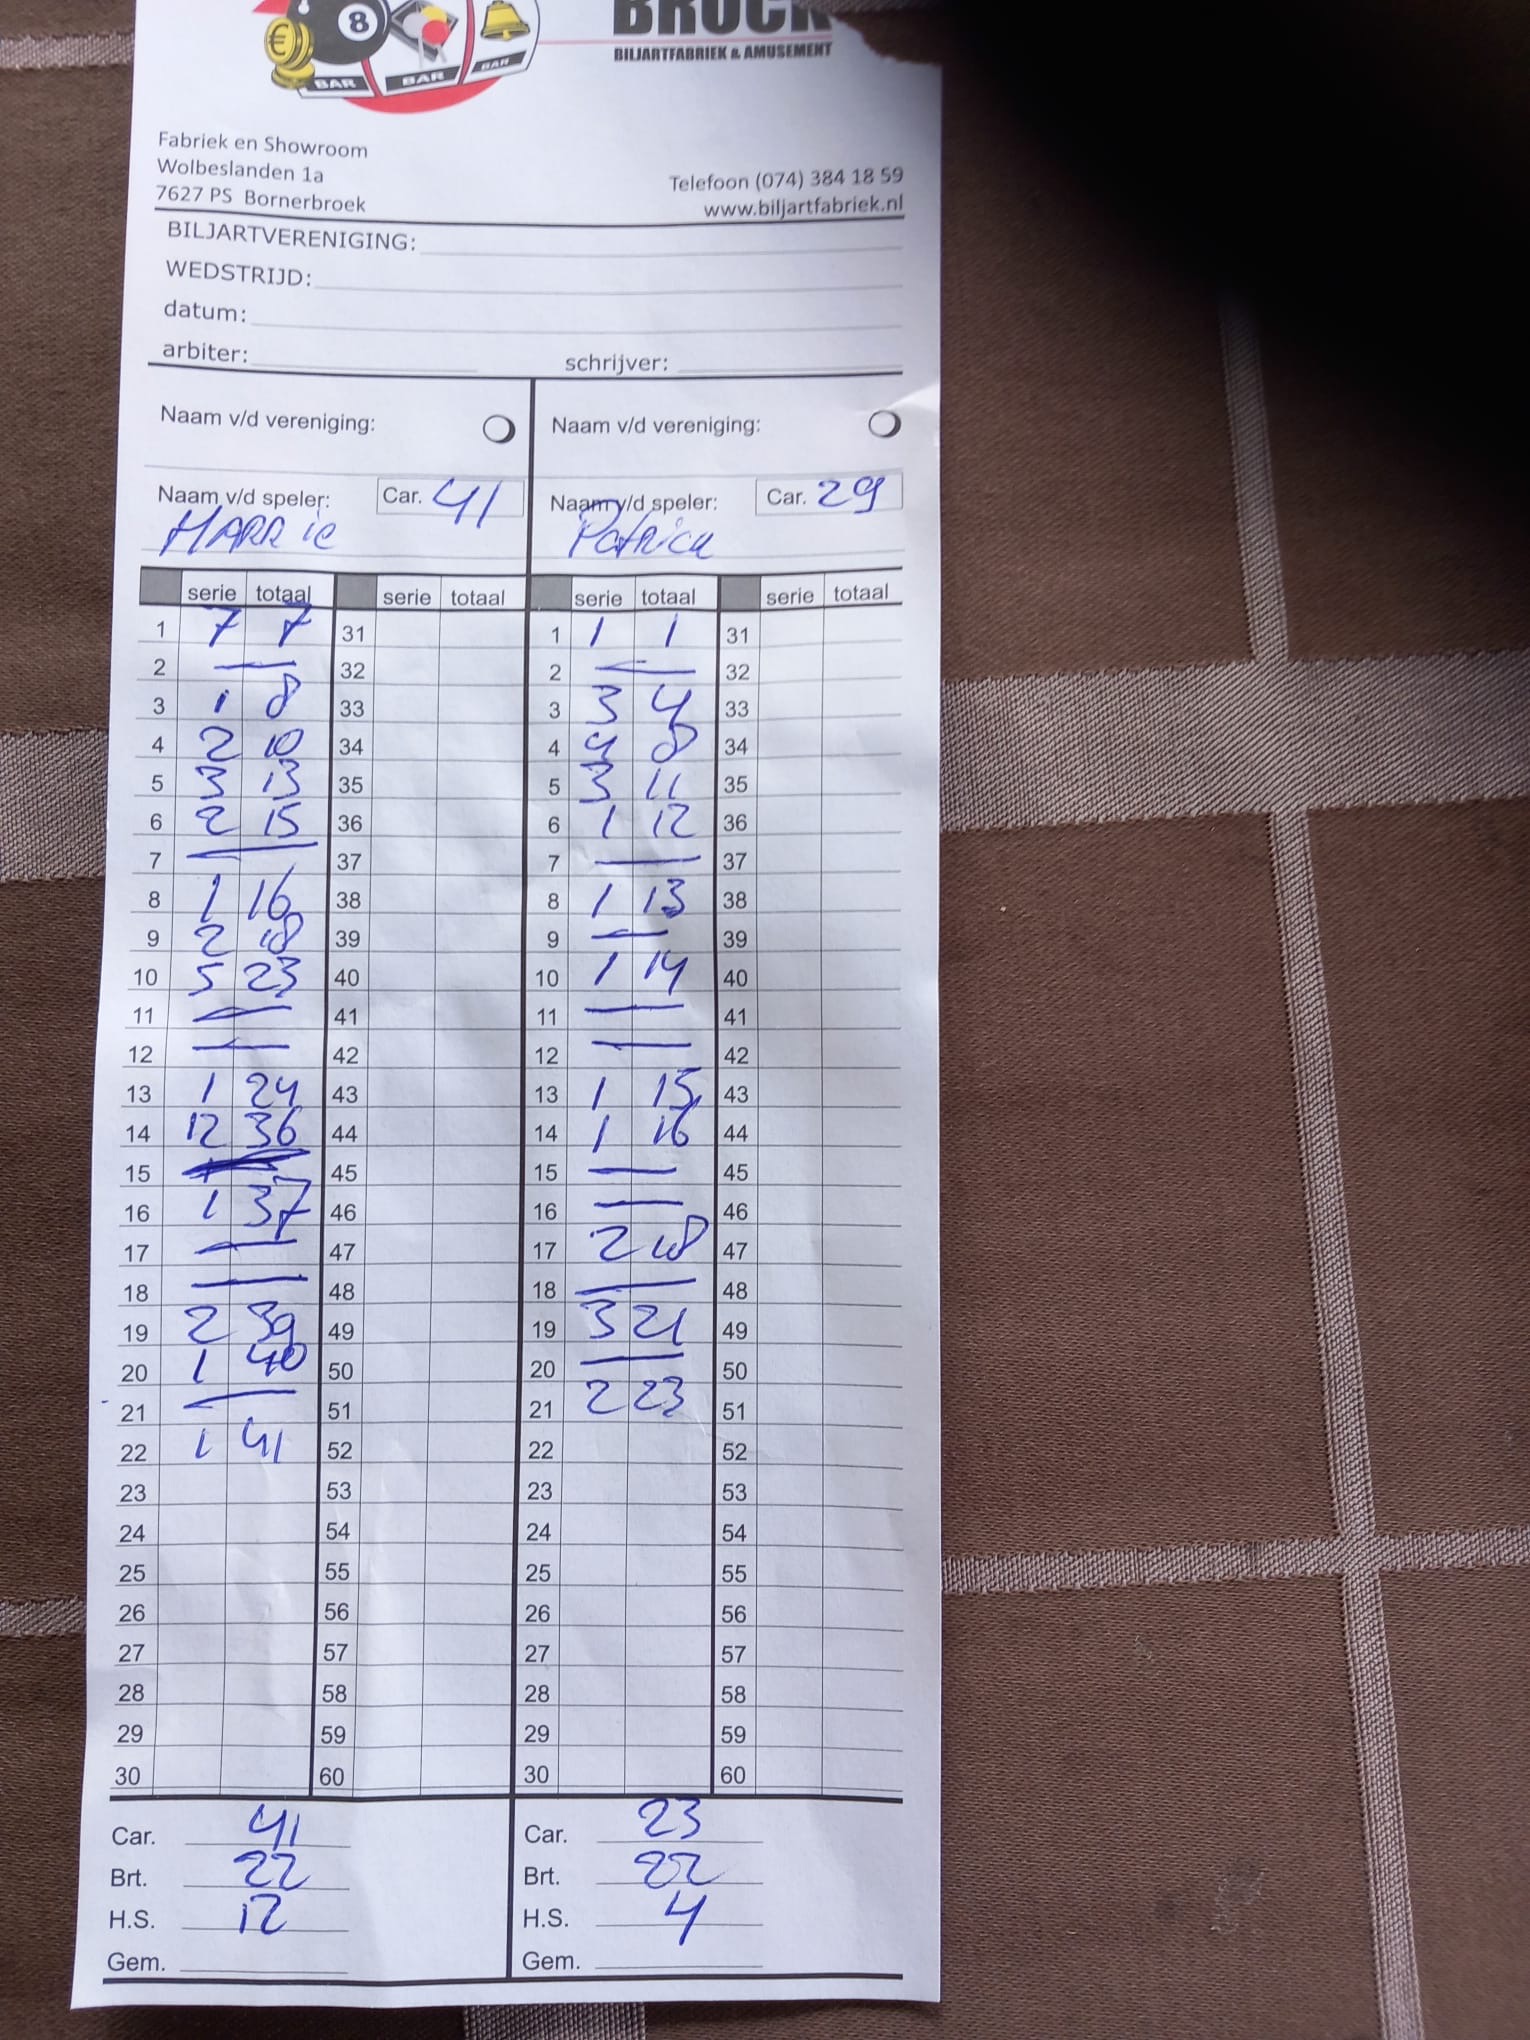 8
€
BAR BAR BAR
BROCK
BILJARTFABRIEK & AMUSEMENT
Fabriek en Showroom
Wolbeslanden 1a
7627 PS Bornerbroek
Telefoon (074) 384 18 59
www.biljartfabriek.nl
BILJARTVERENIGING:
WEDSTRIJD:
datum:
arbiter: schrijver:
Naam v/d vereniging: Naam v/d vereniging:
Naam v/d speler: Car. 41 Naam v/d speler: Car. 29
HARRIE Patrick
serie totaal serie totaal serie totaal serie totaal
1 7 7 31 1 1 1 31
2 — 32 2 — 32
3 1 8 33 3 3 4 33
4 2 10 34 4 4 8 34
5 3 13 35 5 3 11 35
6 2 15 36 6 1 12 36
7 — 37 7 — 37
8 1 16 38 8 1 13 38
9 2 18 39 9 — 39
10 5 23 40 10 1 14 40
11 — 41 11 — 41
12 — 42 12 — 42
13 1 24 43 13 1 15 43
14 12 36 44 14 1 16 44
15 — 45 15 — 45
16 1 37 46 16 — 46
17 — 47 17 2 18 47
18 — 48 18 — 48
19 2 39 49 19 3 21 49
20 1 40 50 20 — 50
21 — 51 21 2 23 51
22 1 41 52 22 52
23 53 23 53
24 54 24 54
25 55 25 55
26 56 26 56
27 57 27 57
28 58 28 58
29 59 29 59
30 60 30 60
Car. 41 Car. 23
Brt. 22 Brt. 22
H.S. 12 H.S. 4
Gem. Gem.